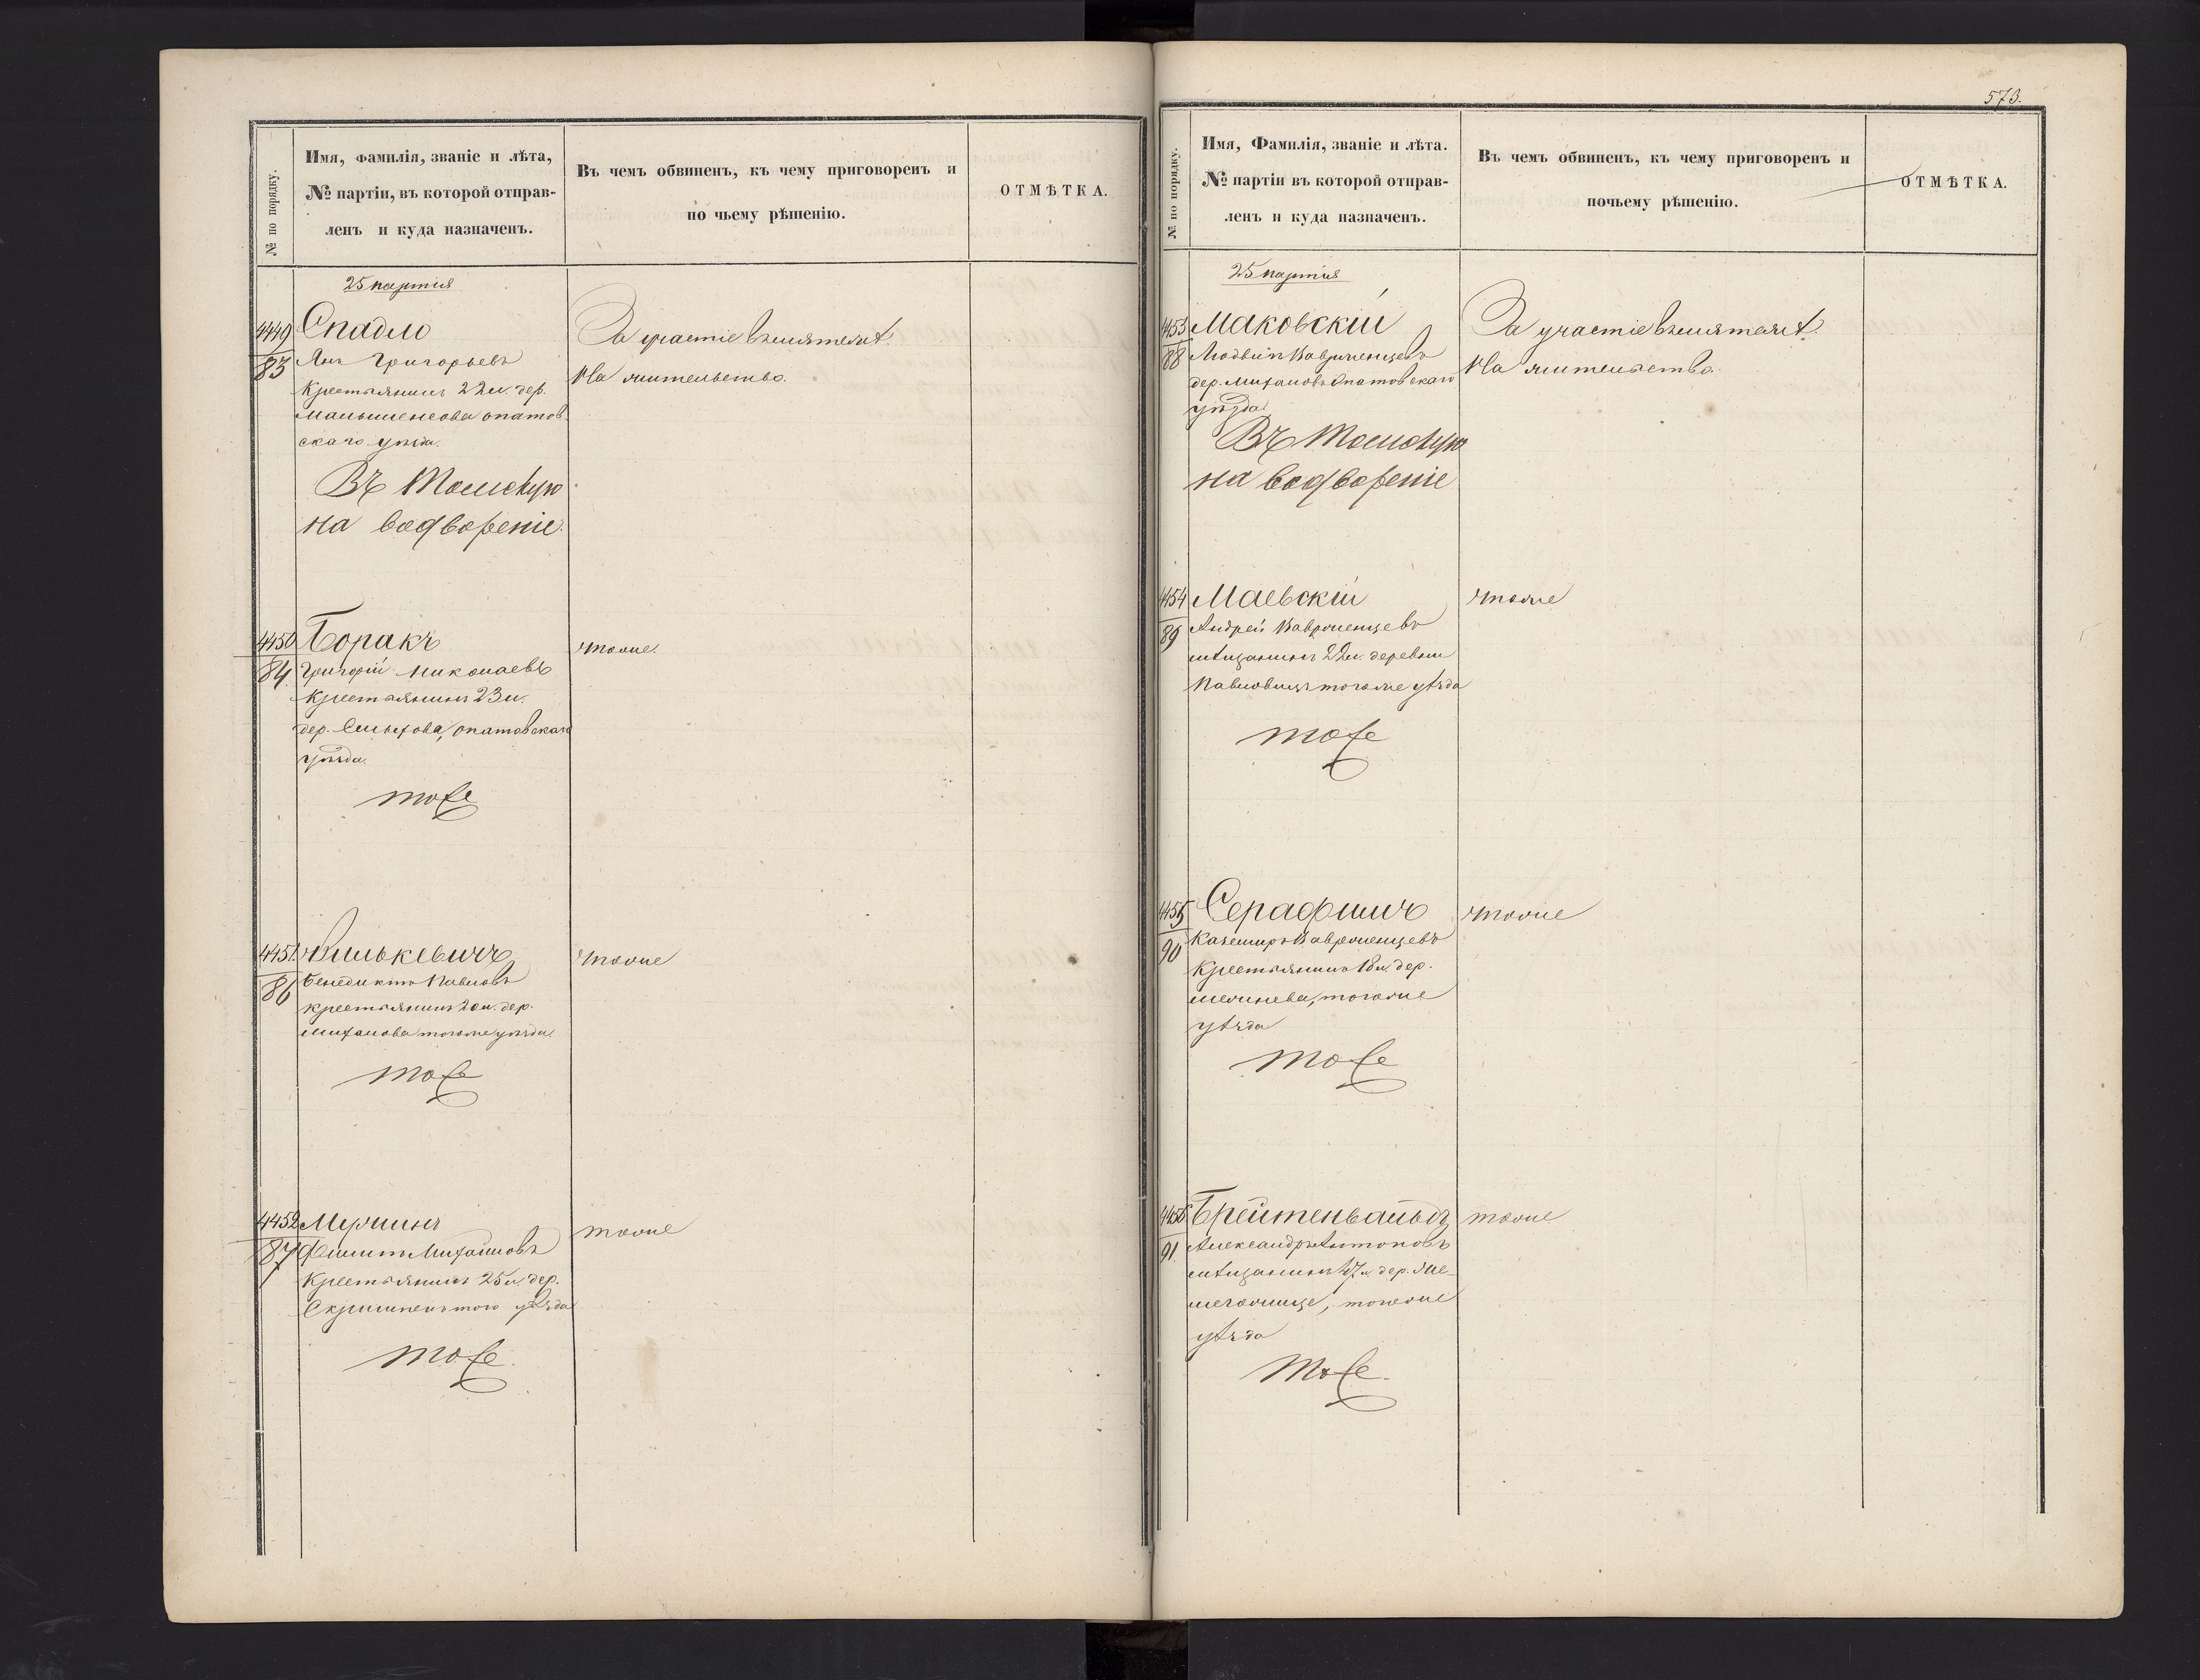 № по порядку.
Имя, фамилія, званіе и лѣта,
№ партіи, въ которой отправ-
ленъ и куда назначенъ.
Въ чемъ обвиненъ, къ чему приговоренъ и
по чьему рѣшенію.
ОТМѢТКА.
25 партія
4449
83
Спадло
Янъ Григорьевъ
Крестьянинъ 22 л. дер.
опатов
скаго уѣзда.
Въ Томскую
на водвореніе.
За участіе въ мятежѣ.
На жительство.
4450
84
Боракъ
Григорій Николаевъ
Крестьянинъ 23 л.
дер. опатовскаго
уѣзда.
тоже
тоже.
4451
86
Вилькевичъ
Бенедиктъ Павловъ
крестьянинъ 20 л. дер.
Михалова тогоже уѣзда.
тоже
тоже
4452
87
Филипъ Михайловъ
Крестьянинъ 25 л. дер.
того уѣзда
тоже.
тоже
573.
№ по порядку.
Имя, Фамилія, званіе и лѣта.
№ партіи въ которой отправ-
ленъ и куда назначенъ.
Въ чемъ обвиненъ, къ чему приговоренъ и
почьему рѣшенію.
ОТМѢТКА.
25 партія
4453
88
Маковскій
Людвигъ Вавренцевъ
дер. Михаловъ Опатовскаго
уѣзда
Въ Томскую
на водвореніе
За участіе въ мятежѣ.
На жительство.
4454
89
Маевскій
Андрей Вавренцевъ
мѣщанинъ 22 л. деревни
Павловицъ тогоже уѣзда
тоже
тоже
4455
90
Серафинъ
Каземиръ Вавренцевъ
Крестьянинъ 18 л. дер.
тогоже
уѣзда
тоже
тоже
4456
91
Брейтенвальдъ
Александръ Антоновъ
мѣщанинъ 47 л. дер.
тогоже
уѣзда
тоже.
тоже